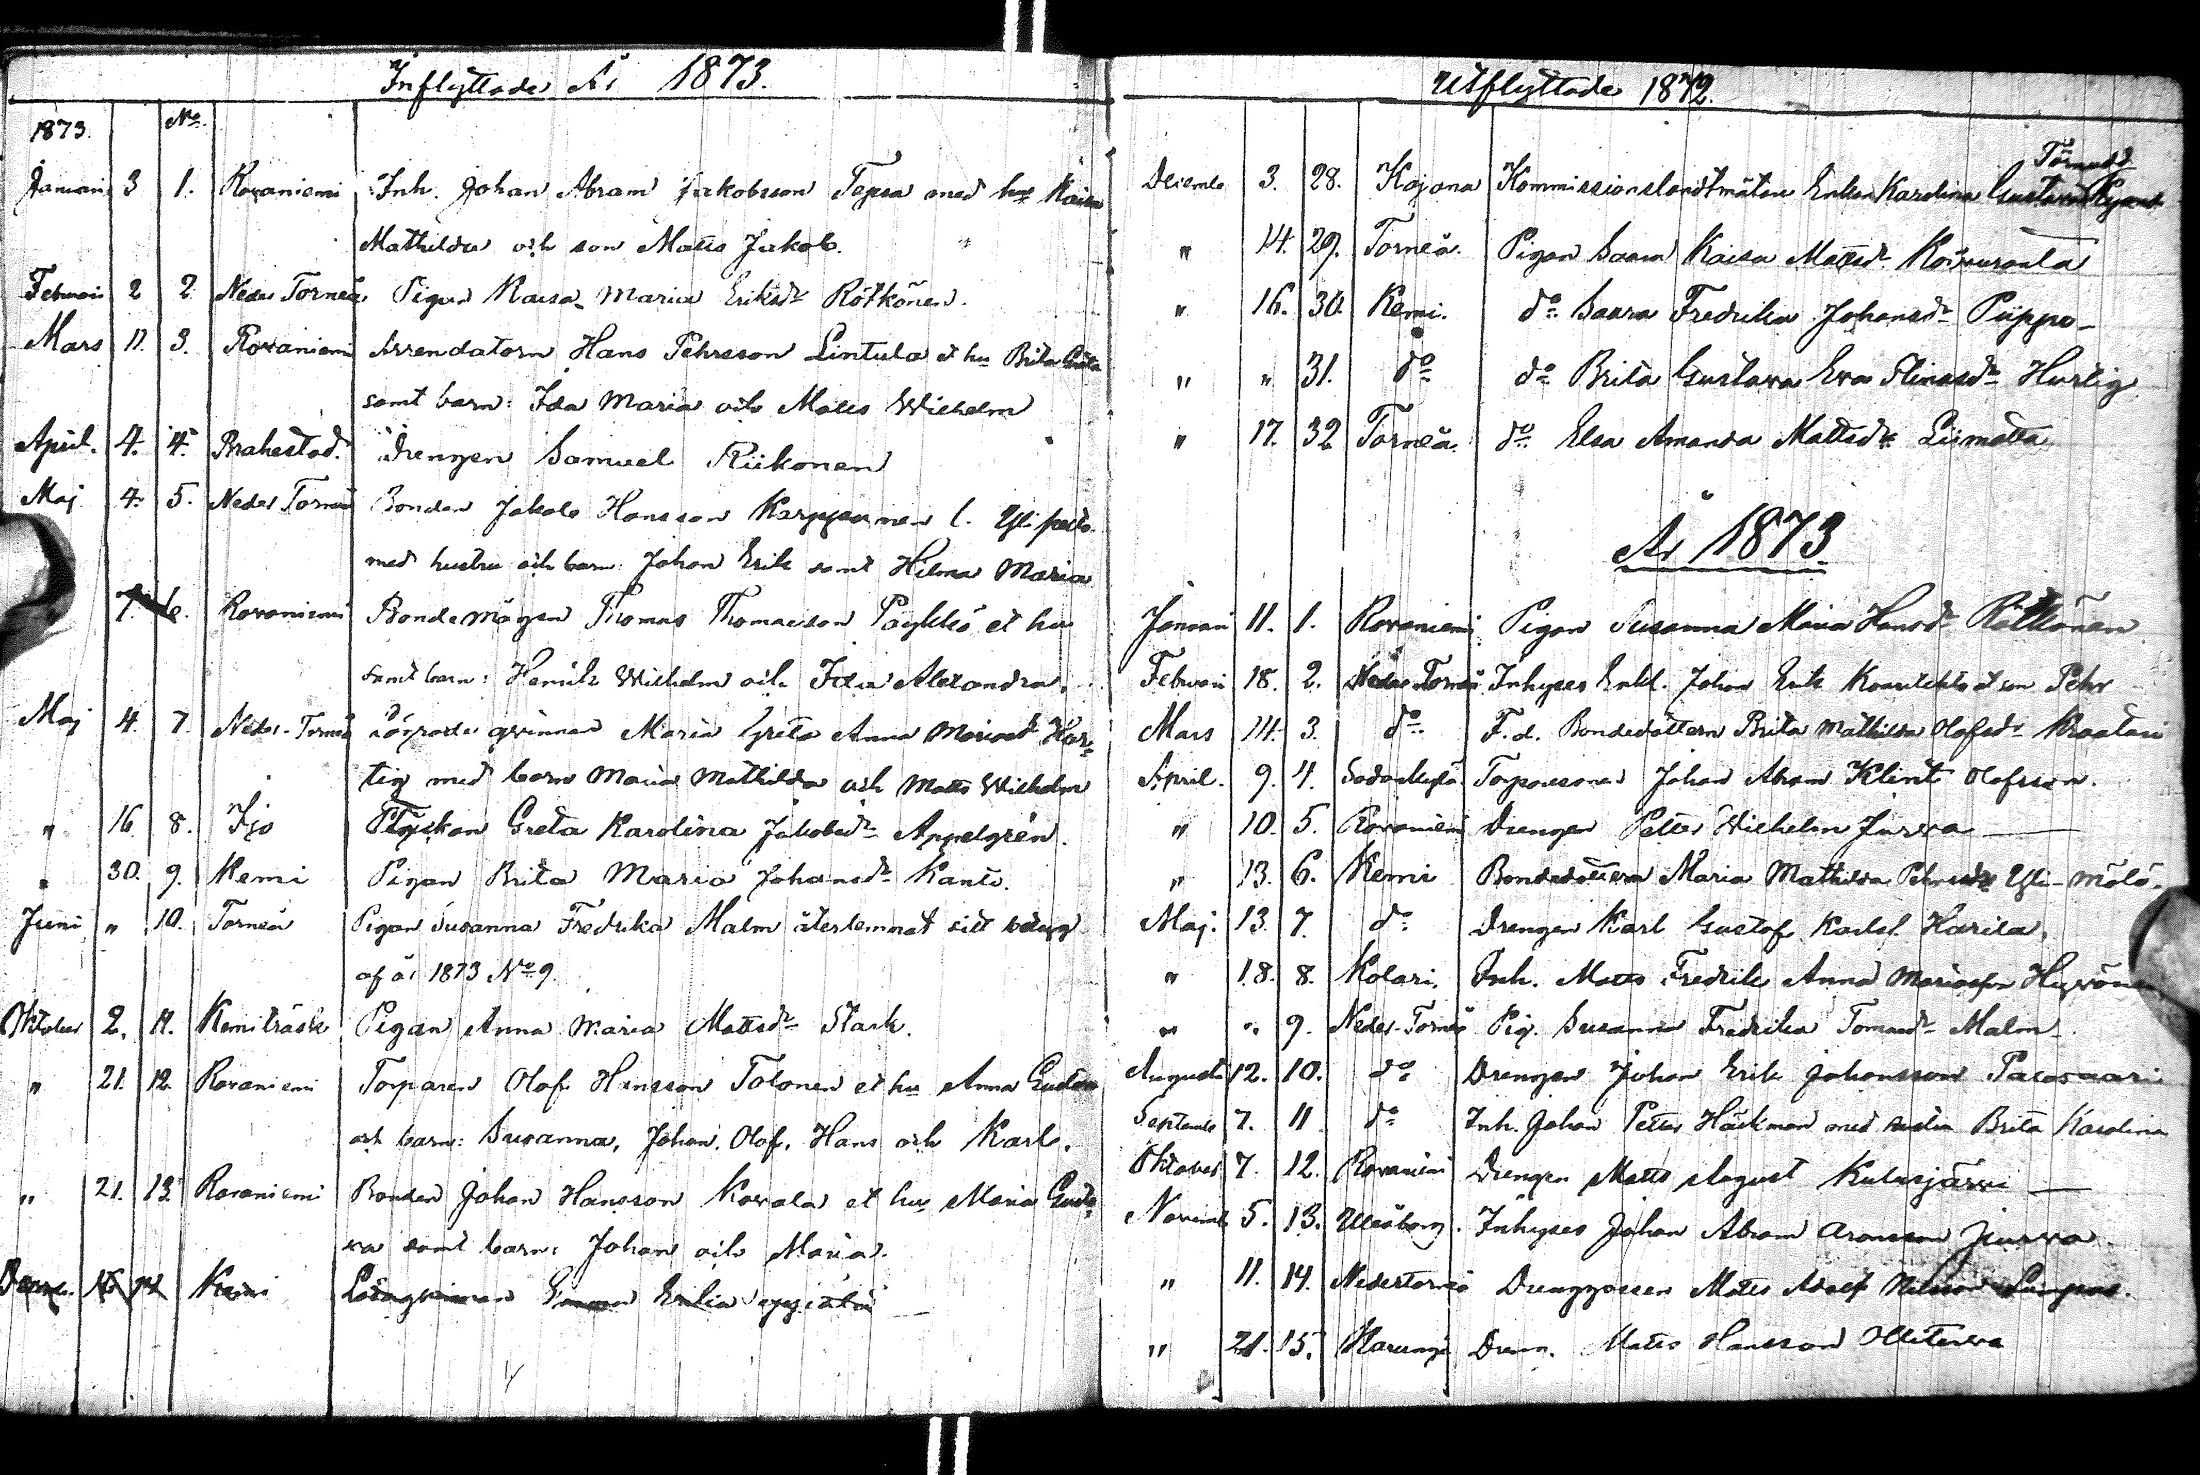 Inflyttade År 1873.
1873. No.
Januari 3 1. Rovaniemi Inh. Johan Abram Jakobsson Tepsa med hu Kaisa
Mathilda och son Matts Jakob.
Februari 2 2 Neder Torneå Pigan Kaisa Maria Eriksdr Rötkönen.
Mars 11. 3. Rovaniemi Arrendatorn Hans Pehrsson Lintula et hu Brita Greta
samt barn: Ida Maria och Matts Wilhelm
April. 4. 4. Brahestad. Drengen Samuel Riikonen
Maj 4. 5. Neder Torneå Bonden Jakob Hansson Karppinen l.
med hustru och barn: Johan Erik samt Hilma Maria
7. 6. Rovaniemi Bondemågen Thomas Thomasson et hu
samt barn: Henrik Wilhelm och Ida Alexandra.
Maj 4. 7. Neder-Torneå qvinnan Maria Greta Anna Mariasdr Hur-
tig med barn Maria Mathilda och Matts Wilhelm
" 16. 8. Ijo Greta Karolina Jakobsdr Appelgrén.
" 30. 9. Kemi Pigan Brita Maria Johansdr Kanto.
Juni " 10. Torneå Pigan Susanna Fredrika Malm återlemnat sitt betyg
af år 1873 No 9.
Oktober 2. 11. Kemiträsk Pigan Anna Maria Mattsdr Stark.
" 21. 12. Rovaniemi Torparen Olof Hansson Tolonen et hu Anna Gustava
och barn: Susanna, Johan, Olof, Hans och Karl.
" 21. 13. Rovaniemi Bonden Johan Hansson Kovala et hu Maria Gusta-
va samt barn: Johan och Maria.
Decemb. 14 Kemi
Utflyttade 1872.
Decemb. 3. 28. Kajana Kommissionslandtmätare Enkan Karolina Gustava
" 14. 29. Torneå. Pigan Saara Kaisa Mattsdr Koivuranta
" 16. 30. Kemi. do Saara Fredrika Johansdr Piippo
" " 31. do do Brita Gustava Eva Stinasdr Hurtig
" 17. 32 Torneå do Elsa Amanda Mattsdr Liimatta
År 1873
Januari 11. 1. Rovaniemi Pigan Susanna Maria Hansdr Rötkönen
Februari 18. 2. Neder Torneå Inhyses Enkl. Johan Erik et son Pehr
Mars 14. 3. do F.d. Bondedottern Brita Mathilda Olofsdr Kraatari
April. 9. 4. Sodankylä Torparesonen Johan Abram Klint Olofsson.
" 10. 5. Rovaniemi Drengen Petter Wilhelm Jurva
" 13. 6. Kemi Bondedottern Maria Mathilda Pehrsdr Yli-Mölö.
Maj. 13. 7. do Drengen Karl Gustaf Karlsl. Harila.
" 18. 8. Kolari. Inh. Matts Fredrik Anna Mariasson
" " 9. Neder-Torneå Pig. Susanna Fredrika Tomasdr Malm
Augusti 12. 10. do Drengen Johan Erik Johansson
Septemb 7. 11 do Inh. Johan Petter Häckman med hustru Brita Karolina
Oktober 7. 12. Rovaniemi Drengen Matts August Kulusjärvi
Novemb. 5. 13. Uleåborg. Inhyses Johan Abram Aronsson Juurva
" 11. 14. Nedertorneå Drenggossen Matts Adolf Nilsson
" 21. 15. Karungi Dreng. Matts Hansson